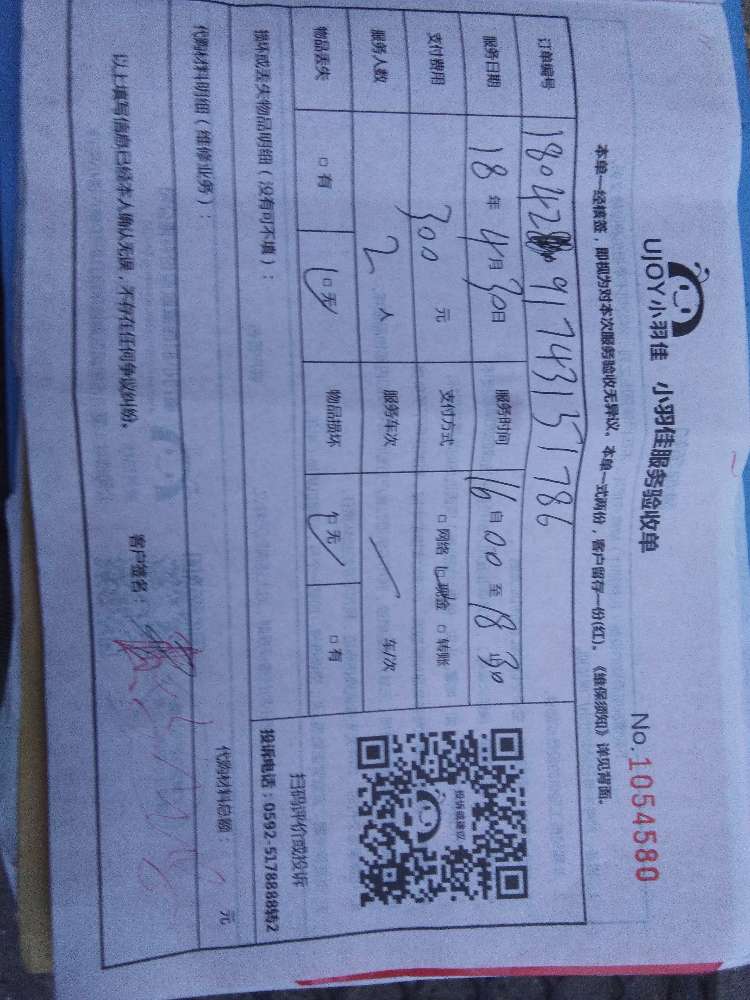 UJOY小羽佳 小羽佳服务验收单
No.1054580
本单一经核签，即视为对本次服务验收无异议。本单一式两份，客户留存一份(红)。《维保须知》详见背面。
订单编号 18042891743151786
服务日期 18年4月30日 服务时间 16自00至18 30
支付费用 300元 支付方式 □网络 □现金 □转账
服务人数 2人 服务车次 / 车/次
物品丢失 □有 □无 物品损坏 □无 □有
投诉或建议
扫码评价或投诉
投诉电话：0592-5178888转2
损坏或丢失物品明细（没有可不填）：
代购材料明细（维修业务）：
代购材料总额： / 元
以上填写信息已经本人确认无误，不存在任何争议纠纷。
客户签名：